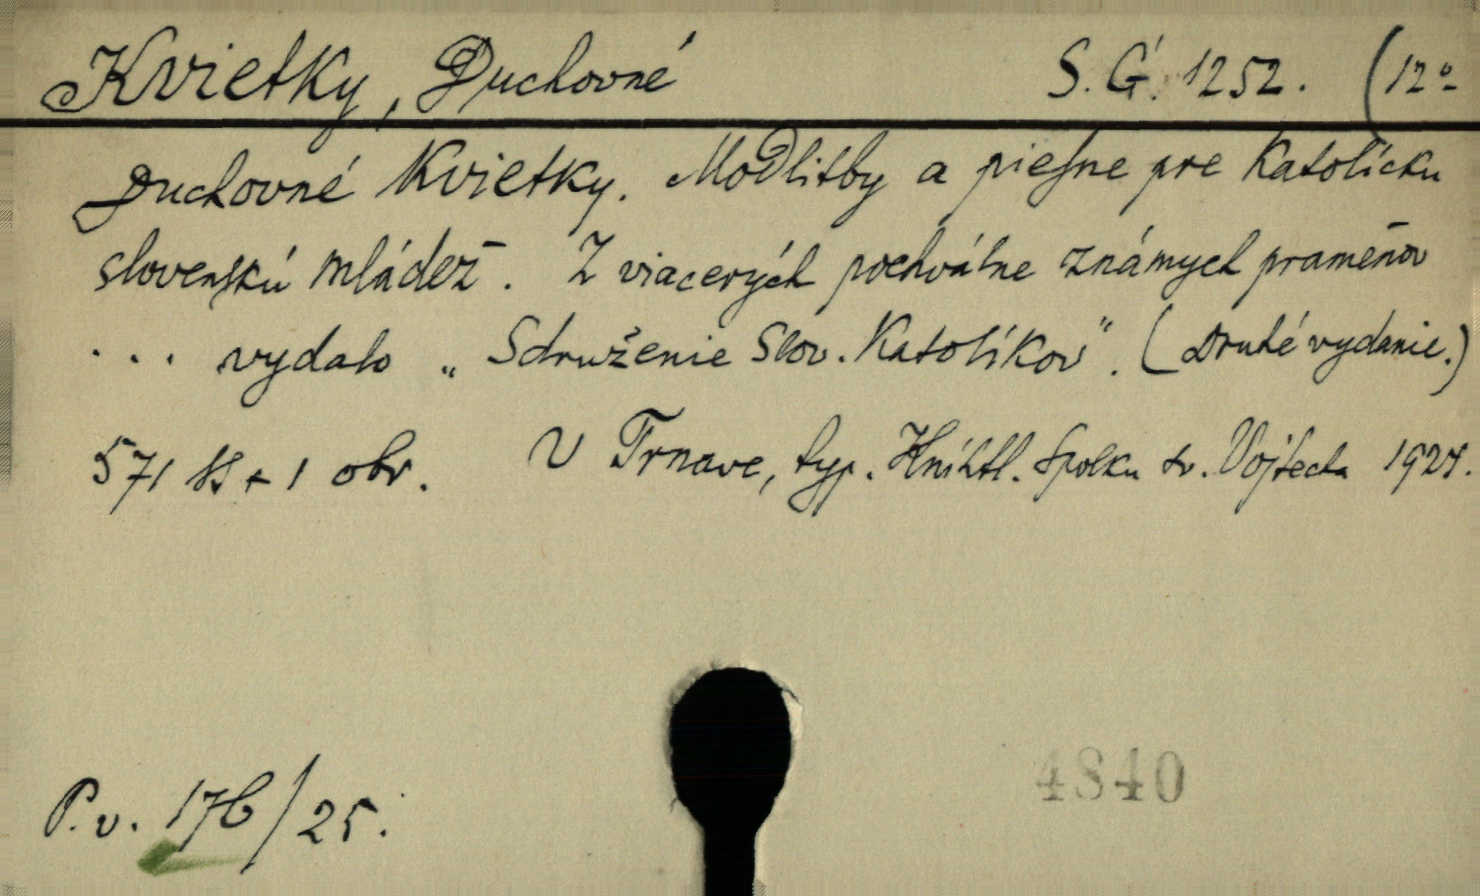 Kvietky, Duchovné S. G. 1252. (12°
Duchovné Kvietky. Modlitby a piesne pre Katolícku
slovenskú mládež. Z viacerých pochvátne známych prameňov
... vydalo „Sdruženie Slov. Katolíkov". (Druhé vydanie.)
571 SS + 1 obr. V Trnave, typ. Kníhtl. Spolku sv. Vojtecha 1924.
P. v. 176/25.
4840